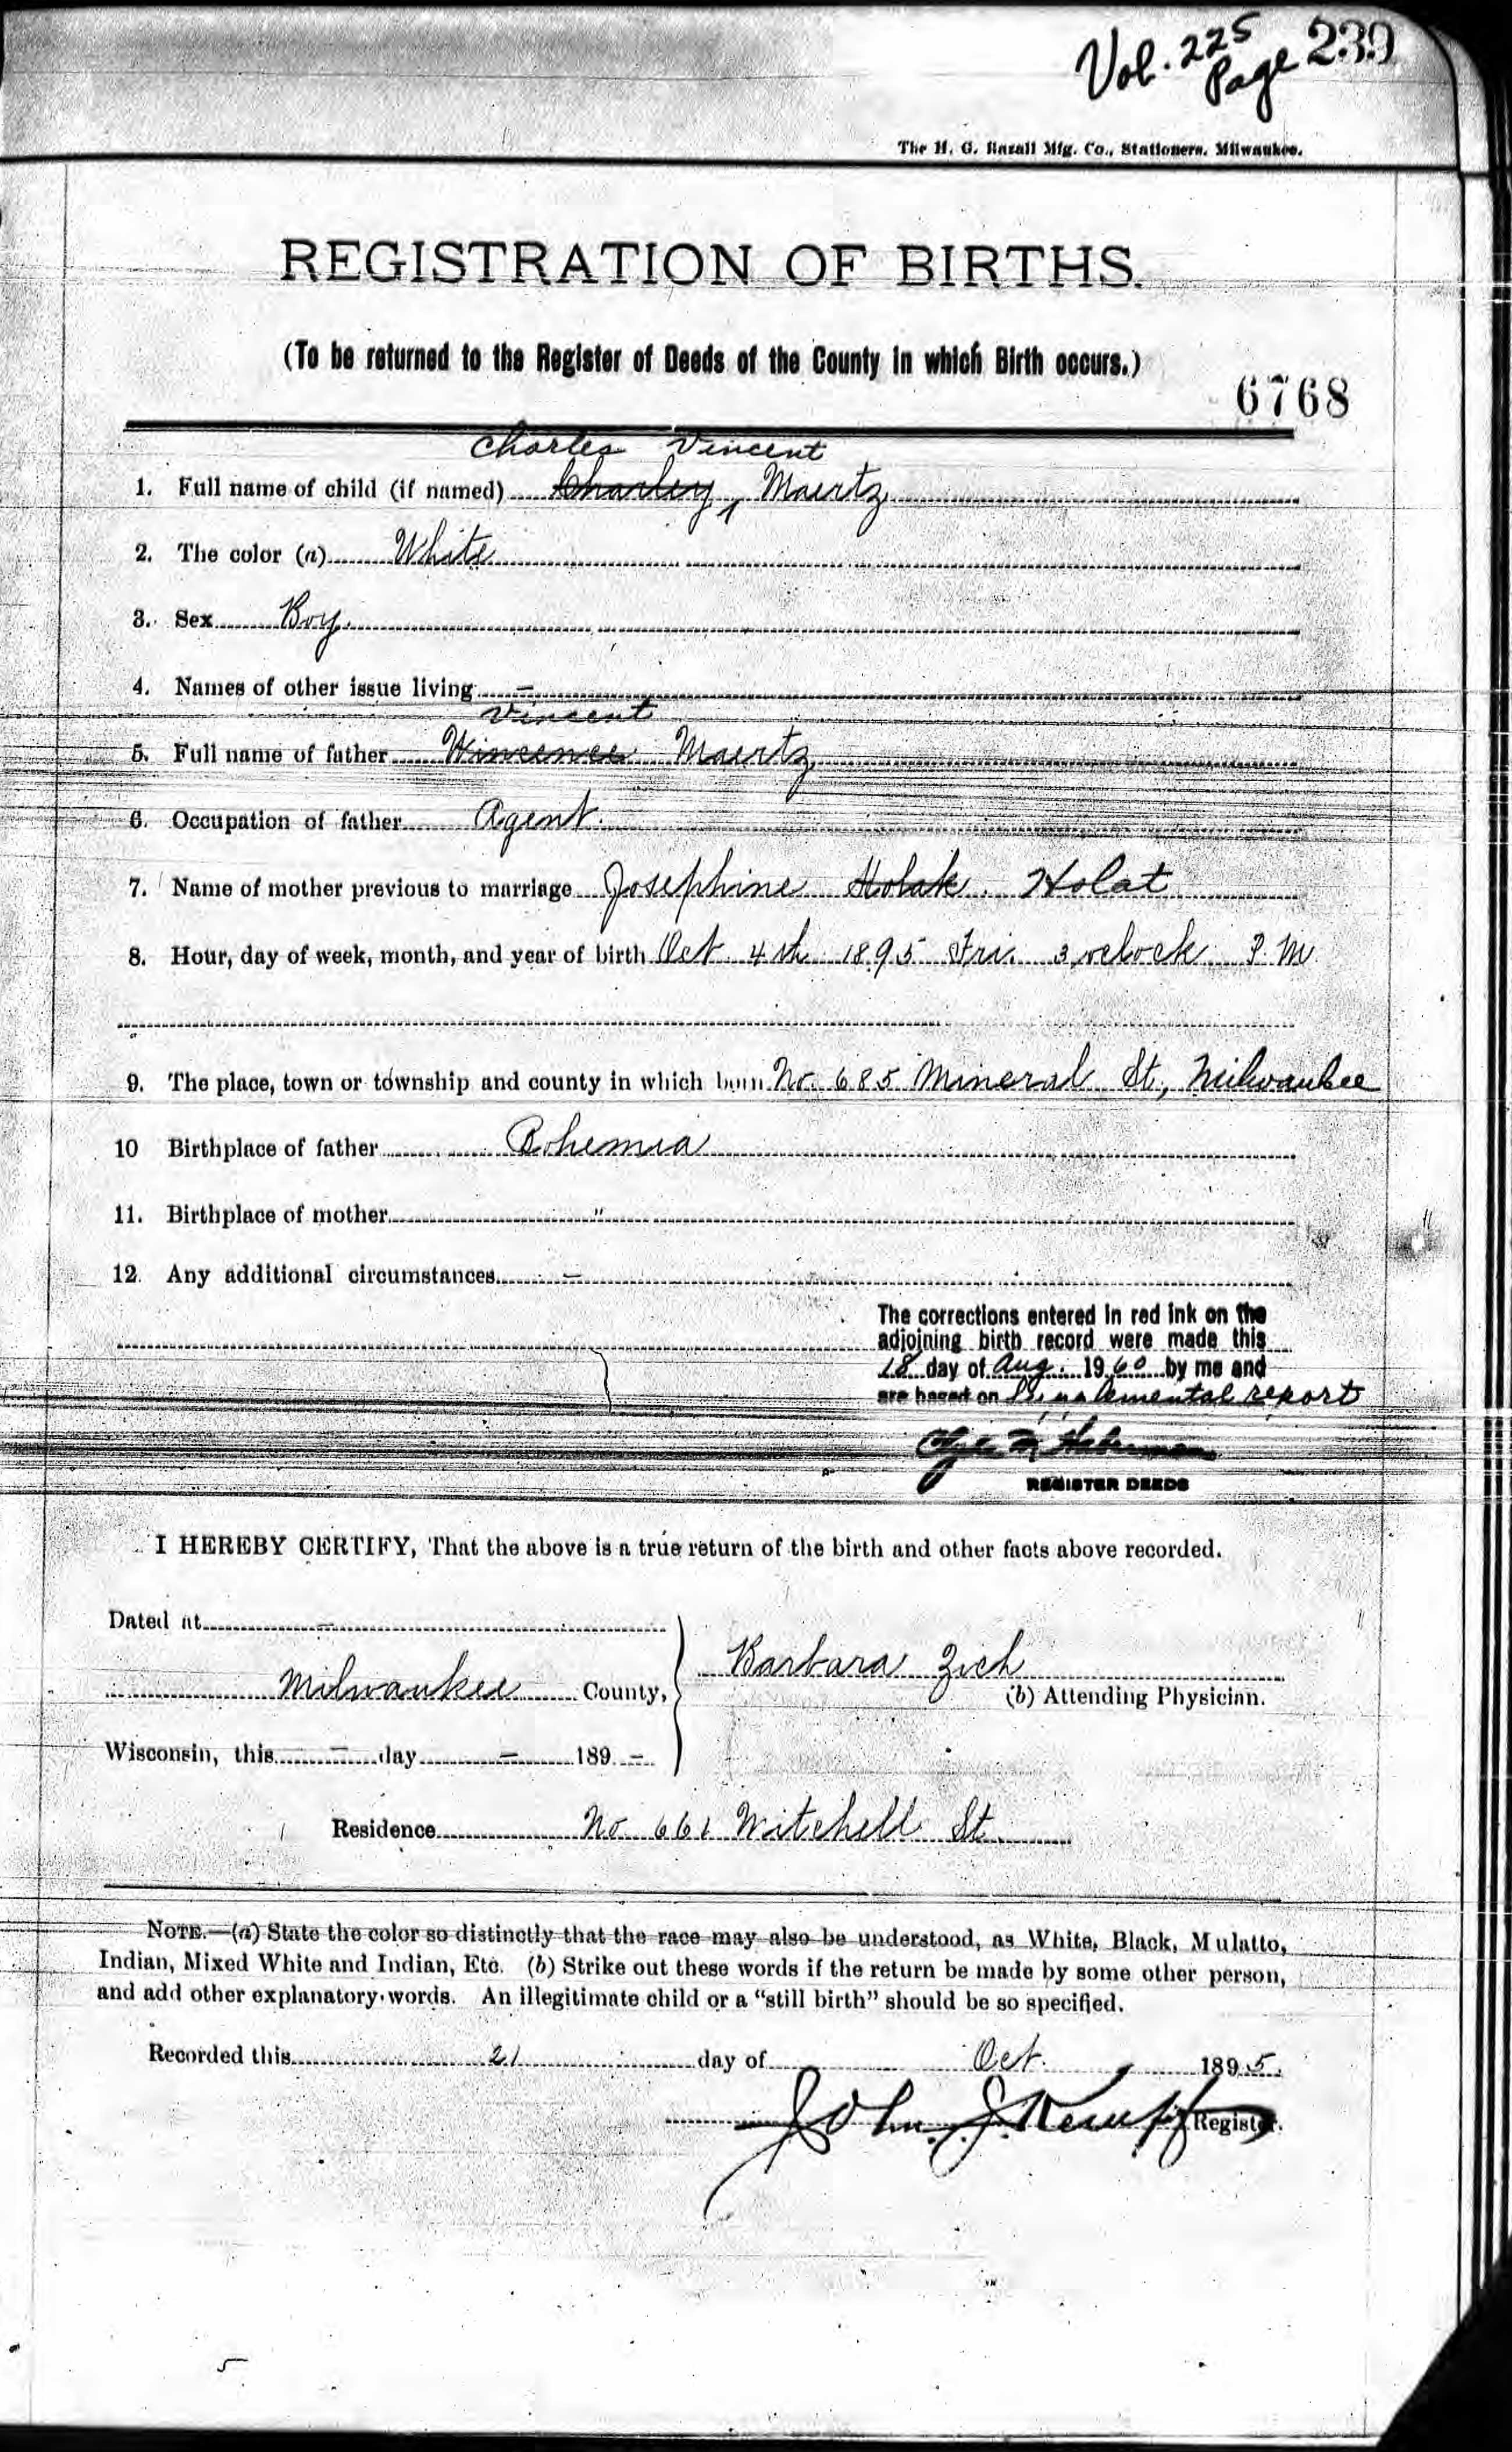 Vol. 225
Page 239
The H. G. Razall Mfg. Co., Stationers, Milwaukee.
REGISTRATION OF BIRTHS.
(To be returned to the Register of Deeds of the County in which Birth occurs.)
6768
Charles Vincent
1. Full name of child (if named) Charley, Maertz
2. The color (a) White
3. Sex Boy.
4. Names of other issue living –
Vincent
5. Full name of father Wincence Maertz
6. Occupation of father Agent.
7. Name of mother previous to marriage Josephine Holak. Holat
8. Hour, day of week, month, and year of birth Oct 4th 1895 Fri. 3 oclock P. M.
9. The place, town or township and county in which born No. 685 Mineral St., Milwaukee
10 Birthplace of father Bohemia
11. Birthplace of mother "
12. Any additional circumstances –
The corrections entered in red ink on the
adjoining birth record were made this
18 day of Aug. 1960 by me and
are based on Supplemental report
REGISTER DEEDS
I HEREBY CERTIFY, That the above is a true return of the birth and other facts above recorded.
Dated at –
Barbara Zich
Milwaukee County,
(b) Attending Physician.
Wisconsin, this – day – 189 –
Residence No 661 Mitchell St.
NOTE.—(a) State the color so distinctly that the race may also be understood, as White, Black, Mulatto,
Indian, Mixed White and Indian, Etc. (b) Strike out these words if the return be made by some other person,
and add other explanatory words. An illegitimate child or a "still birth" should be so specified.
Recorded this 21 day of Oct. 1895.
John J. Kempf Register.
5